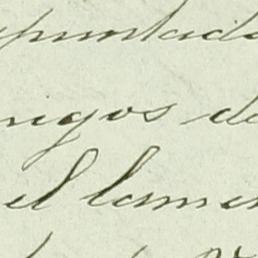 apuntada
migos de
el lamen